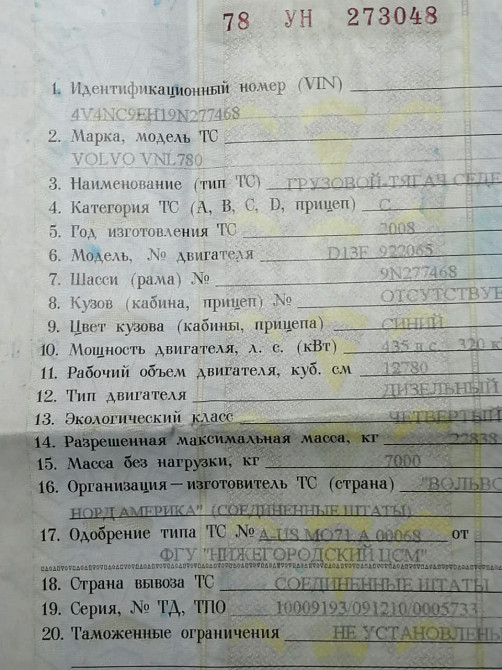 78 УН 273048
1. Идентификационный номер (VIN)
4V4NC9EH19N277468
2. Марка, модель ТС
VOLVO VNL780
3. Наименование (тип ТС) ГРУЗОВОЙ-ТЯГАЧ СЕДЕ
4. Категория ТС (A, B, C, D, прицеп) C
5. Год изготовления ТС 2008
6. Модель, № двигателя D13F 922065
7. Шасси (рама) № 9N277468
8. Кузов (кабина, прицеп) № ОТСУТСТВУЕ
9. Цвет кузова (кабины, прицепа) СИНИЙ
10. Мощность двигателя, л. с. (кВт) 435 л.с. 320 к
11. Рабочий объем двигателя, куб. см 12780
12. Тип двигателя ДИЗЕЛЬНЫЙ
13. Экологический класс ЧЕТВЕРТЫЙ
14. Разрешенная максимальная масса, кг 22838
15. Масса без нагрузки, кг 7000
16. Организация — изготовитель ТС (страна) "ВОЛЬВО
НОРД АМЕРИКА" (СОЕДИНЕННЫЕ ШТАТЫ)
17. Одобрение типа ТС № A-US.MO71.A.00068 от
ФГУ "НИЖЕГОРОДСКИЙ ЦСМ"
18. Страна вывоза ТС СОЕДИНЕННЫЕ ШТАТЫ
19. Серия, № ТД, ТПО 10009193/091210/0005733
20. Таможенные ограничения НЕ УСТАНОВЛЕН